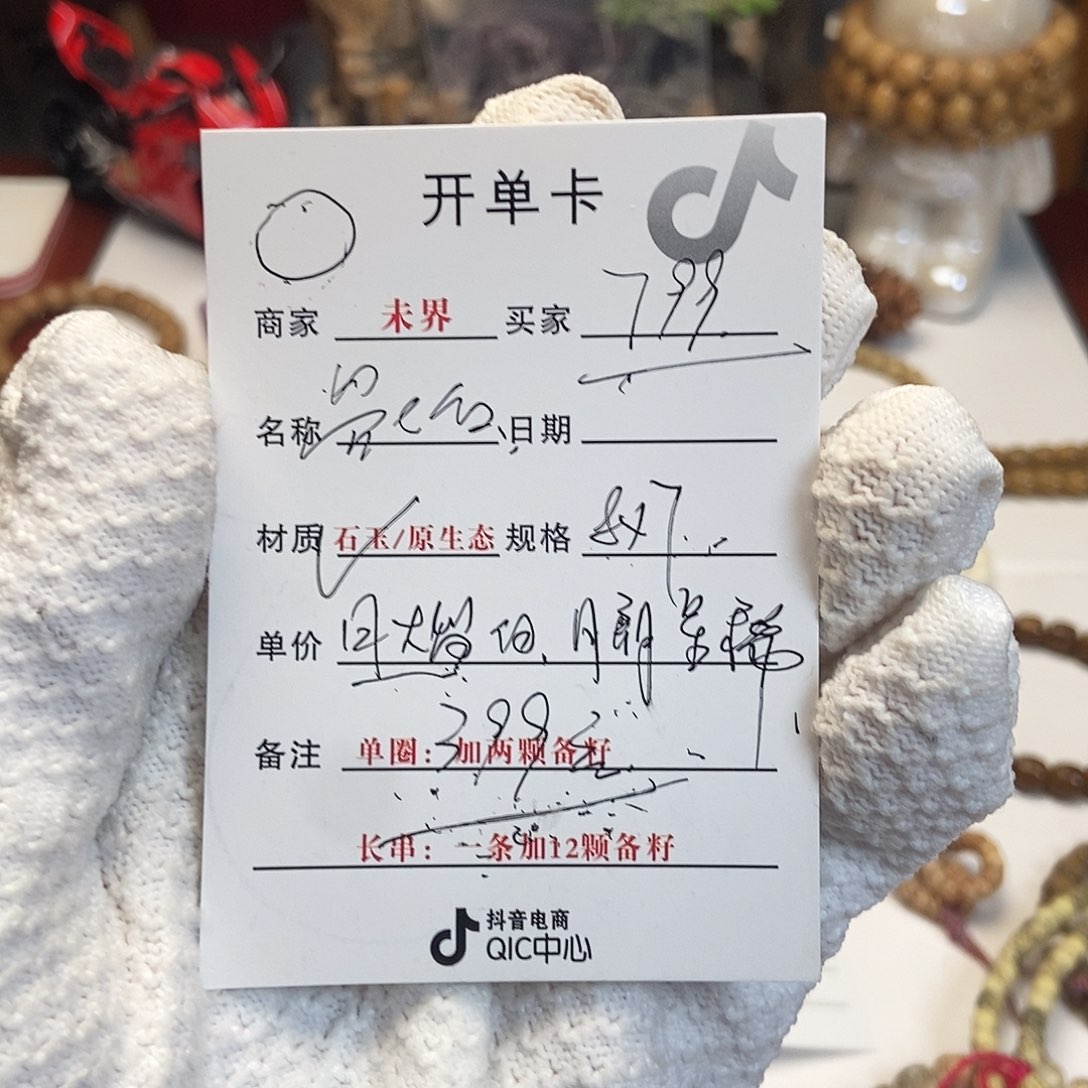 开单卡
商家 未界 买家 799
名称 日期
材质 石玉/原生态 规格 8x7
单价
399
备注 单圈：加两颗备籽
长串：一条加12颗备籽
抖音电商
QIC中心